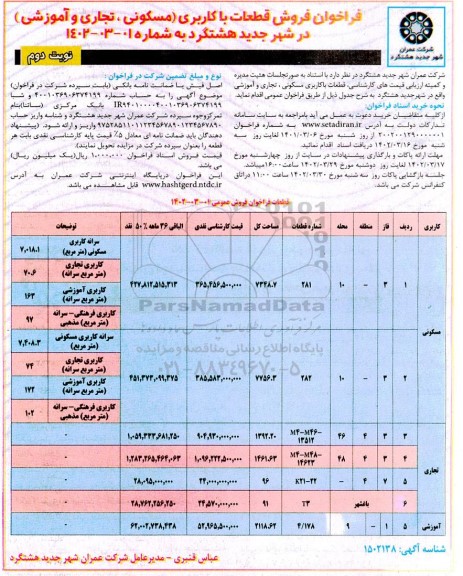 فراخوان فروش قطعات با کاربری (مسکونی ، تجاری و آموزشی)
در شهر جدید هشتگرد به شماره ۰۱-۰۳-۱۴۰۲
شرکت عمران شهر جدید هشتگرد
نوبت دوم
شرکت عمران شهر جدید هشتگرد در نظر دارد با استناد به صورتجلسات هیئت مدیره
و کمیته ارزیابی قیمت های کارشناسی، قطعات باکاربری مسکونی ، تجاری و آموزشی
واقع در شهرجدید هشتگرد به شرح جدول ذیل از طریق فراخوان عمومی اقدام نماید.
نحوه خرید اسناد فراخوان:
از کلیه متقاضیان خرید دعوت به عمل می آید بامراجعه به سایت سامانه
تدارکات دولت به آدرس www.setadiran.ir به شماره فراخوان
شنبه مورخ ۱۴۰۲/۰۳/۱۶ دریافت اسناد اقدام نمایند.
مهلت ارائه پاکات و بارگذاری پیشنهادات در سایت از روز چهارشنبه مورخ
۱۴۰۲/۰۳/۱۷ لغایت روز دوشنبه مورخ ۱۴۰۲/۰۳/۲۹ ساعت ۱۶:۰۰ میباشد.
جلسه بازگشایی پاکات روز سه شنبه مورخ ۱۴۰۲/۰۳/۳۰ ساعت ۱۱:۰۰ دراتاق
کنفرانس شرکت می باشد.
نوع و مبلغ تضمین شرکت در فراخوان :
اصل فیش یا ضمانت نامه بانکی (بابت سپرده شرکت در فراخوان)
تمرکز وجوه سپرده شرکت عمران شهر جدید هشتگرد و شناسه واریز حساب
دهندگان باید ضمانت نامه ای معادل ۵٪ قیمت پایه کارشناسی نقدی بابت هر
قطعه را بعنوان سپرده شرکت در مزایده تحویل نمایند).
قیمت فروش اسناد فراخوان ۱,۰۰۰,۰۰۰ ریال(یک میلیون ریال)
می باشد.
این فراخوان درپایگاه اینترنتی شرکت عمران به آدرس
www.hashtgerd.ntdc.ir قابل مشاهده می باشد.
قطعات فراخوان فروش عمومی ۰۱-۰۳-۱۴۰۲
کاربری ردیف فاز منطقه محله شماره قطعات مساحت کل قیمت کارشناسی نقدی اقساطی ۳۶ ماهه ۵۰٪ نقد توضیحات
مسکونی ۱ ۳ - ۱۰ ۲۸۱ ۷۳۴۸.۷ ۳۶۵,۴۵۶,۵۰۰,۰۰۰ ۴۲۷,۸۱۲,۵۱۵,۳۱۳
سرانه کاربری مسکونی (متر مربع) ۷,۰۱۸.۱
کاربری تجاری (متر مربع سرانه) ۷۰.۶
کاربری آموزشی (متر مربع سرانه) ۱۶۳
کاربری فرهنگی- سرانه (متر مربع) مذهبی ۹۷
۲ ۳ - ۱۰ ۲۸۲ ۷۷۵۶.۳ ۳۸۵,۵۸۳,۰۰۰,۰۰۰ ۴۵۱,۳۷۳,۰۹۹,۳۷۵
سرانه کاربری مسکونی (متر مربع) ۷,۴۰۸.۳
کاربری تجاری (متر مربع سرانه) ۷۴
کاربری آموزشی (متر مربع سرانه) ۱۷۲
کاربری فرهنگی- سرانه (متر مربع) مذهبی ۱۰۲
تجاری ۳ ۳ ۴ ۴۶ M۴-M۴۶-۱۳۵۱۲ ۱۳۹۲.۲۰ ۹۰۴,۹۳۰,۰۰۰,۰۰۰ ۱,۰۵۹,۳۳۳,۶۸۱,۲۵۰ -
۴ ۳ ۴ ۴۸ M۴-M۴۸-۱۴۶۲۳ ۱۴۶۱.۶۳ ۱,۰۹۶,۲۲۲,۵۰۰,۰۰۰ ۱,۲۸۳,۲۶۵,۴۶۴,۰۶۳ -
۵ ۷ ۴ K۲۱-۲۲ ۹۶ ۲۴,۰۰۰,۰۰۰,۰۰۰ ۲۸,۰۹۵,۰۰۰,۰۰۰ -
۶ باغشهر T۳ ۹۱ ۲۴,۵۷۰,۰۰۰,۰۰۰ ۲۸,۷۶۲,۲۵۶,۲۵۰ -
آموزشی ۵ ۱ - ۹ ۴/۱۷۸ ۲۱۱۸.۶۲ ۵۲,۹۶۵,۵۰۰,۰۰۰ ۶۲,۰۰۲,۷۳۸,۴۳۸ -
ParsNamadData
پایگاه اطلاع رسانی مناقصه و مزایده
۰۲۱-۸۸۳۴۹۶۷۰-۵
شناسه آگهی: ۱۵۰۲۱۳۸
عباس قنبری - مدیرعامل شرکت عمران شهر جدید هشتگرد